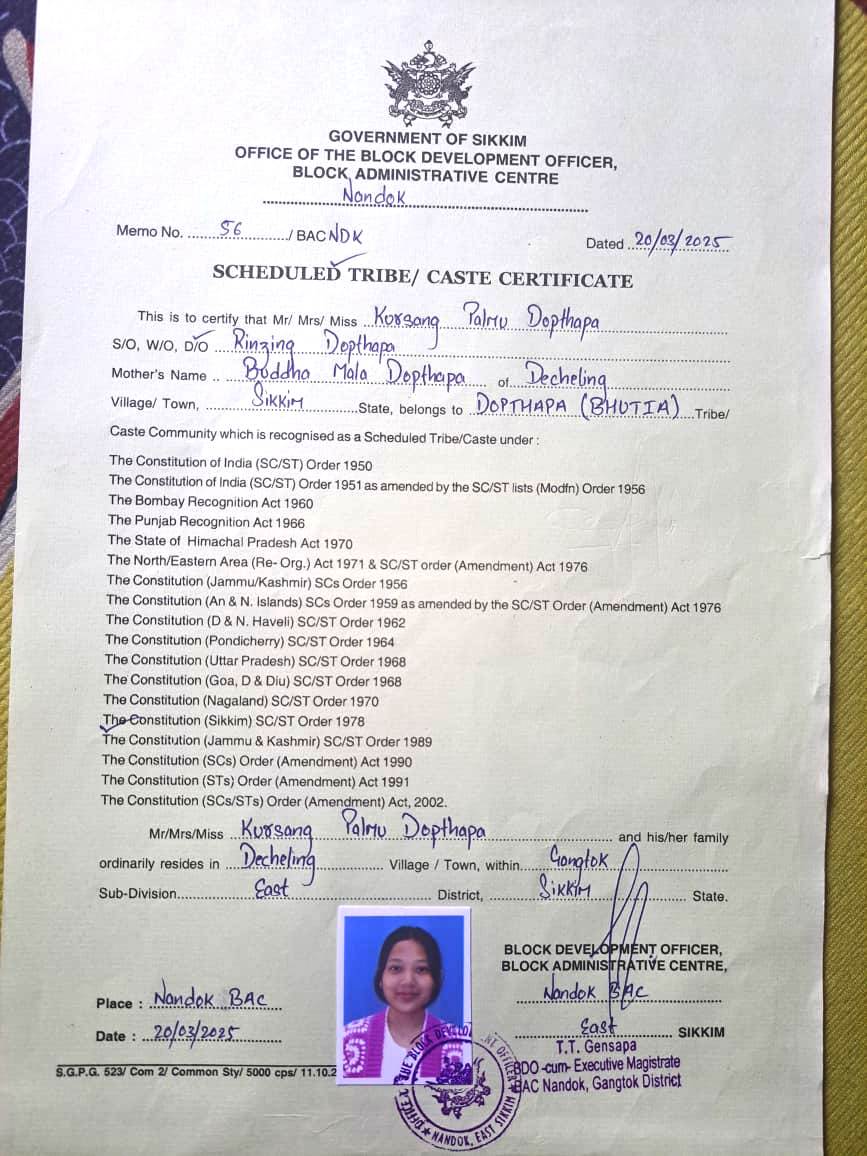 GOVERNMENT OF SIKKIM
OFFICE OF THE BLOCK DEVELOPMENT OFFICER,
BLOCK ADMINISTRATIVE CENTRE
Nandok
Memo No. 56 / BAC NDK
Dated 20/03/2025
SCHEDULED TRIBE/ CASTE CERTIFICATE
This is to certify that Mr/ Mrs/ Miss Kursang Palmu Dopthapa
S/O, W/O, D/O Rinzing Dopthapa
Mother's Name .. Buddha Mala Dopthapa of Decheling
Village/ Town, Sikkim State, belongs to DOPTHAPA (BHUTIA) Tribe/
Caste Community which is recognised as a Scheduled Tribe/Caste under :
The Constitution of India (SC/ST) Order 1950
The Constitution of India (SC/ST) Order 1951 as amended by the SC/ST lists (Modfn) Order 1956
The Bombay Recognition Act 1960
The Punjab Recognition Act 1966
The State of Himachal Pradesh Act 1970
The North/Eastern Area (Re- Org.) Act 1971 & SC/ST order (Amendment) Act 1976
The Constitution (Jammu/Kashmir) SCs Order 1956
The Constitution (An & N. Islands) SCs Order 1959 as amended by the SC/ST Order (Amendment) Act 1976
The Constitution (D & N. Haveli) SC/ST Order 1962
The Constitution (Pondicherry) SC/ST Order 1964
The Constitution (Uttar Pradesh) SC/ST Order 1968
The Constitution (Goa, D & Diu) SC/ST Order 1968
The Constitution (Nagaland) SC/ST Order 1970
The Constitution (Sikkim) SC/ST Order 1978
The Constitution (Jammu & Kashmir) SC/ST Order 1989
The Constitution (SCs) Order (Amendment) Act 1990
The Constitution (STs) Order (Amendment) Act 1991
The Constitution (SCs/STs) Order (Amendment) Act, 2002.
Mr/Mrs/Miss Kursang Palmu Dopthapa and his/her family
ordinarily resides in Decheling Village / Town, within Gangtok
Sub-Division East District, Sikkim State.
BLOCK DEVELOPMENT OFFICER,
BLOCK ADMINISTRATIVE CENTRE,
Place : Nandok BAC
Nandok BAC
Date : 20/03/2025
East SIKKIM
T.T. Gensapa
BDO -cum- Executive Magistrate
BAC Nandok, Gangtok District
S.G.P.G. 523/ Com 2/ Common Sty/ 5000 cps/ 11.10.2
OFFICE THE BLOCK DEVELOPMENT OFFICER
NANDOK, EAST SIKKIM